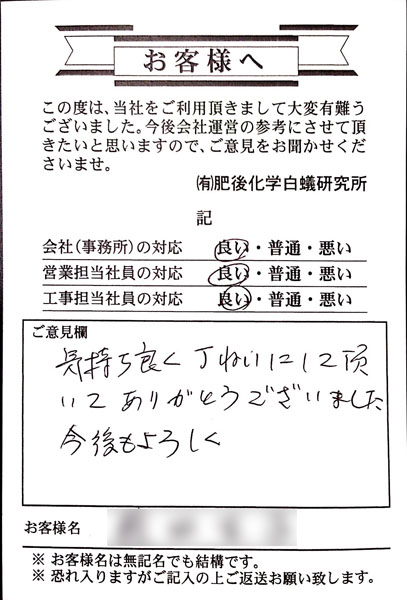 お客様へ
この度は、当社をご利用頂きまして大変有難う
ございました。今後会社運営の参考にさせて頂
きたいと思いますので、ご意見をお聞かせくだ
さいませ。
㈲肥後化学白蟻研究所
記
会社(事務所)の対応 良い・普通・悪い
営業担当社員の対応 良い・普通・悪い
工事担当社員の対応 良い・普通・悪い
ご意見欄
気持ち良く丁ねいにして頂
いてありがとうございました
今後もよろしく
お客様名
※ お客様名は無記名でも結構です。
※ 恐れ入りますがご記入の上ご返送お願い致します。